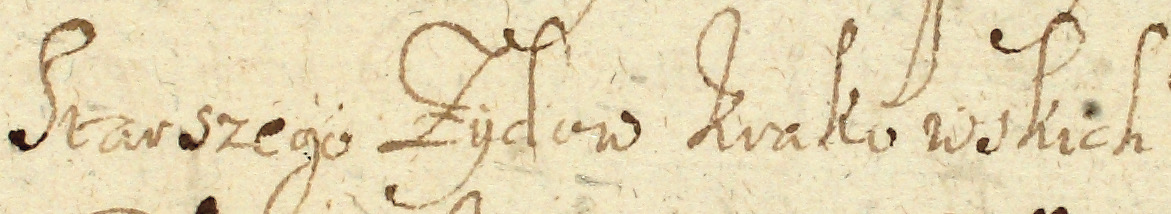 Starszego Zydow Krakowskich